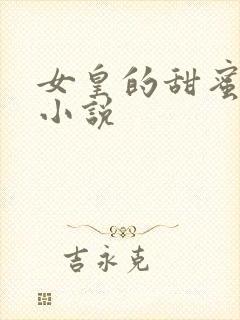 女皇的甜蜜
小說
吉永克